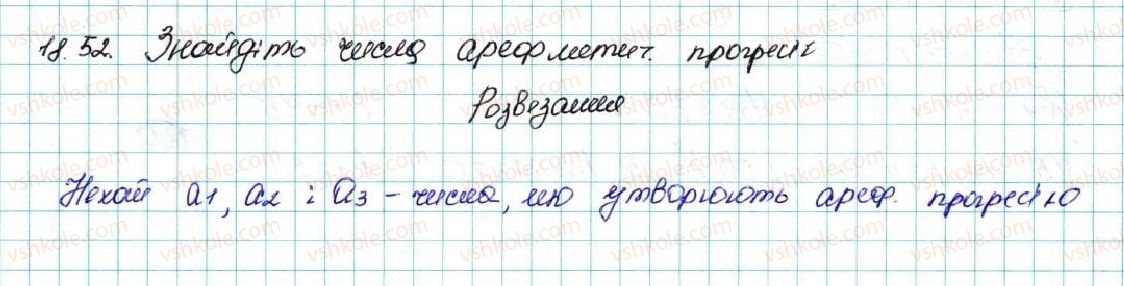 18.52. Знайдіть числа арефметич. прогресії
Розвезання
Нехай a1, a2 і a3 - числа, що утворюють ареф. прогресію